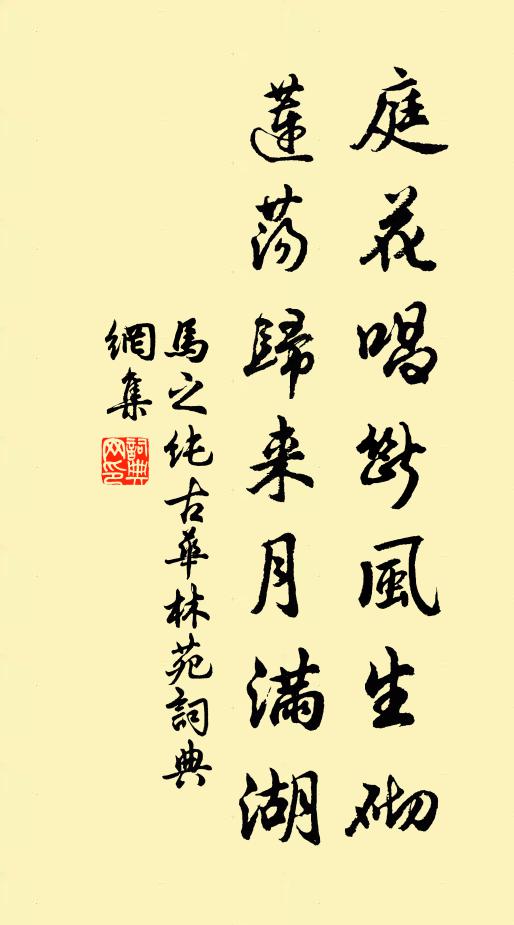 庭花唱斷風生砌
蓮蕩歸来月滿湖
馬之纯古華林苑詞典
網集
詞典
网印